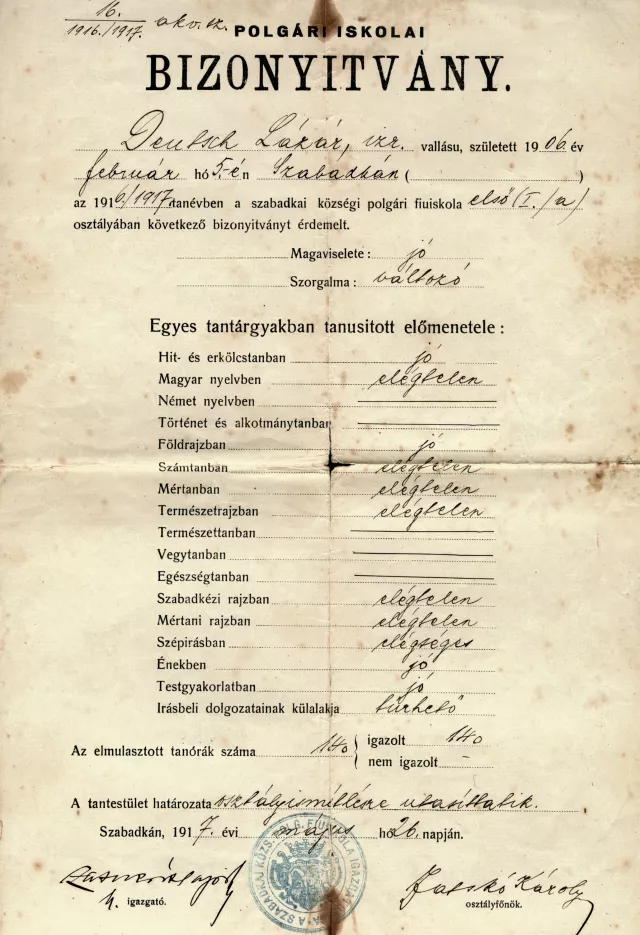 16.
1916./1917. akv. sz.
POLGÁRI ISKOLAI
BIZONYITVÁNY.
Deutsch Lázár, izr. vallásu, született 1906 év
február hó 5-én Szabadkán ( )
az 1916/1917 tanévben a szabadkai községi polgári fiuiskola első (I./a)
osztályában következő bizonyitványt érdemelt.
Magaviselete: jó
Szorgalma: változó
Egyes tantárgyakban tanusitott előmenetele:
Hit- és erkölcstanban jó
Magyar nyelvben elégtelen
Német nyelvben
Történet és alkotmánytanban
Földrajzban jó
Számtanban elégtelen
Mértanban elégtelen
Természetrajzban elégtelen
Természettanban
Vegytanban
Egészségtanban
Szabadkézi rajzban elégtelen
Mértani rajzban elégtelen
Szépirásban elégséges
Énekben jó
Testgyakorlatban jó
Irásbeli dolgozatainak külalakja türhető
Az elmulasztott tanórák száma 140 { igazolt 140
nem igazolt -
A tantestület határozata osztályismétlésre utasíttatik.
Szabadkán, 1917. évi május hó 26. napján.
Jatskó Károly
h. igazgató. osztályfőnök.